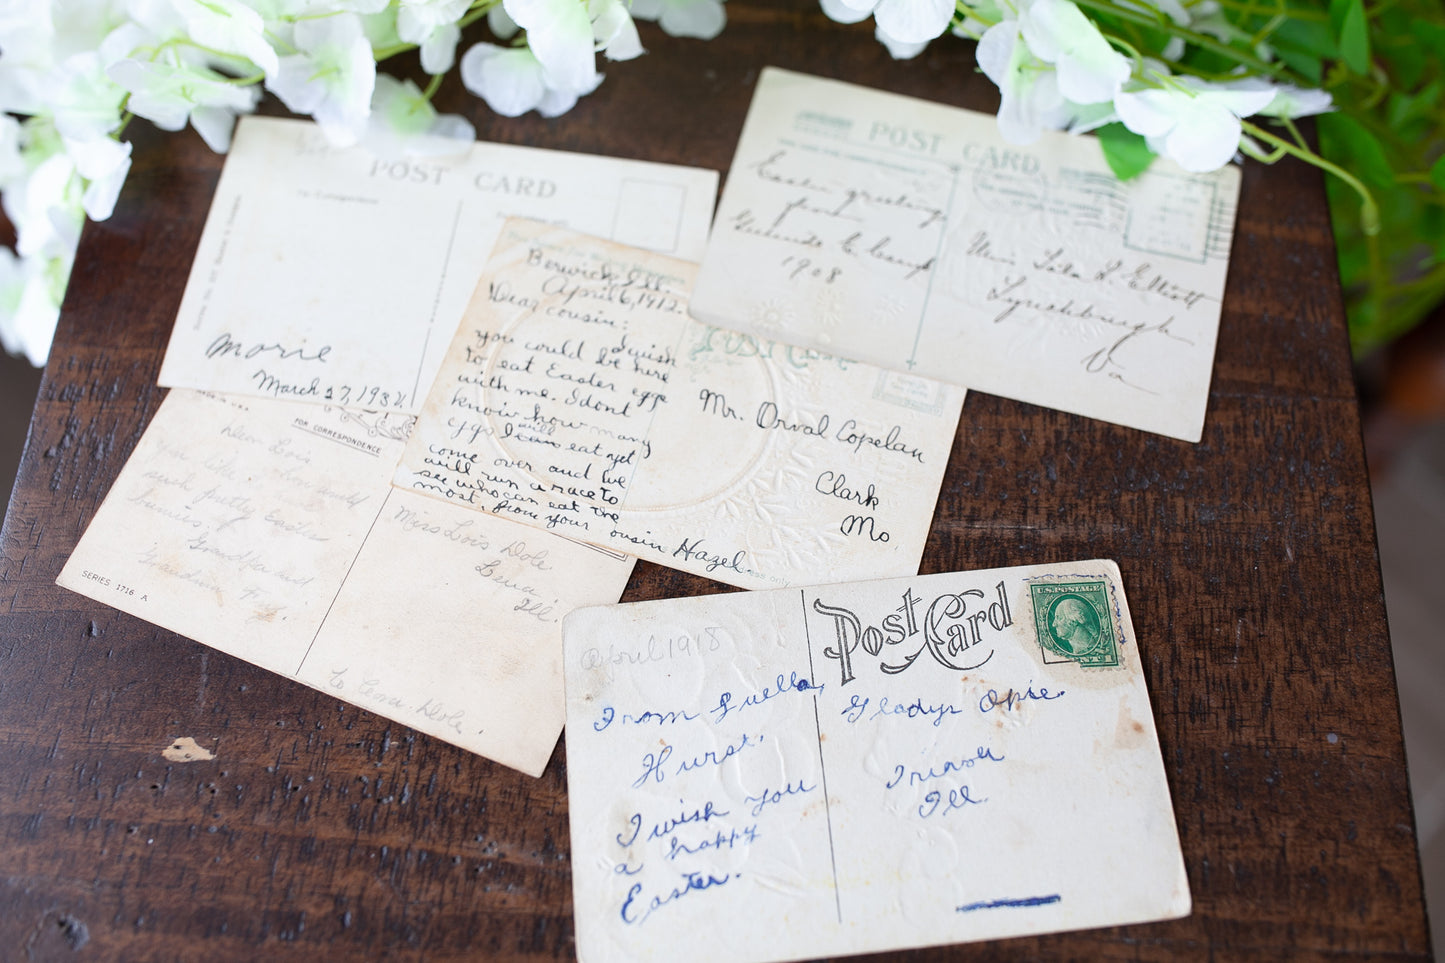 POST CARD
Marie
March 27, 1932.
POST CARD
Easter greetings
from
1908
Miss Lila R. Elliott
Lynchburgh
Va
Berwick, Ill.
April 6, 1912.
Dear cousin:
I wish
you could be here
to eat Easter eggs
with me. I dont
know how many
eggs I will eat yet
come over and we
will run a race to
see who can eat the
most. from your cousin Hazel
Mr. Orval Copelan
Clark
Mo.
FOR CORRESPONDENCE
Dear Lois
such pretty Easter
bunnies, if
Grandpa and
Grandma
SERIES 1716 A
Miss Lois Dole
Lena
Ill.
to Lena, Dole.
Post Card
U.S. POSTAGE
April 1918
From Luella
Hurst.
I wish you
a happy
Easter.
Gladys Opie.
Ill.